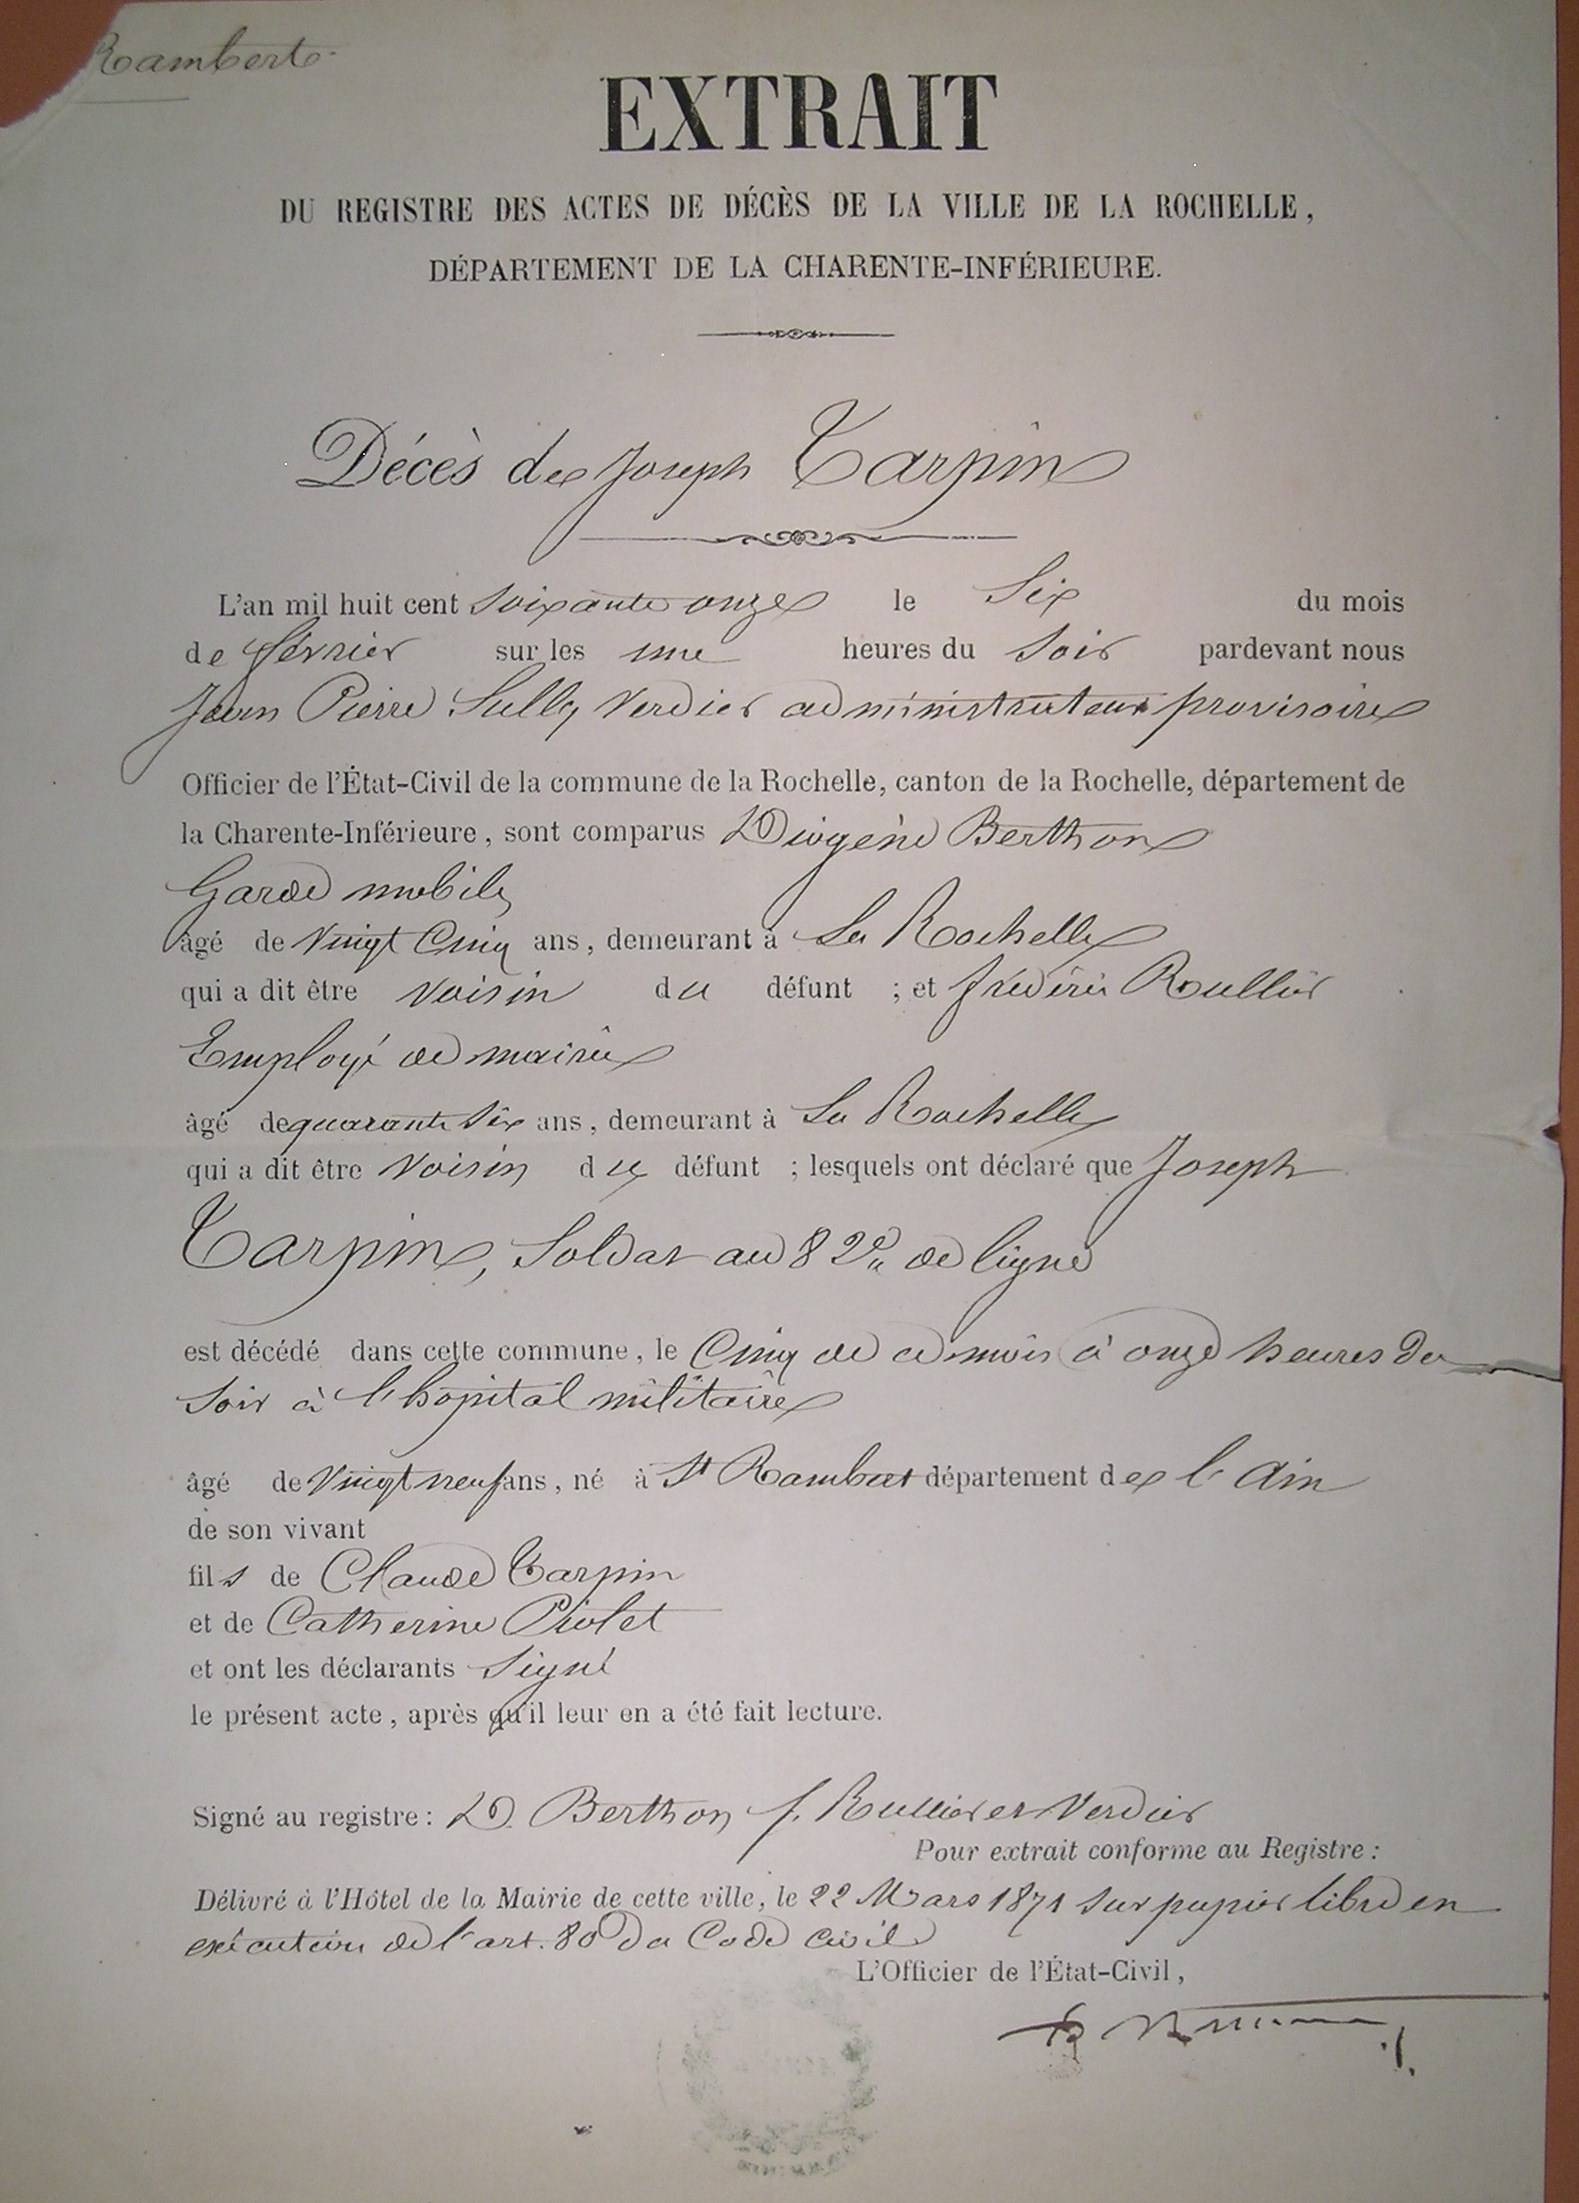 Ramberto
EXTRAIT
DU REGISTRE DES ACTES DE DÉCÈS DE LA VILLE DE LA ROCHELLE,
DÉPARTEMENT DE LA CHARENTE-INFÉRIEURE.
Décès de Joseph Tarpin
L'an mil huit cent soixante onze le Six du mois
de février sur les une heures du Soir pardevant nous
Jean Pierre Sully Verdier administrateur provisoire
Officier de l'État-Civil de la commune de la Rochelle, canton de la Rochelle, département de
la Charente-Inférieure, sont comparus Diogène Berthon
Garde mobile
âgé de Vingt Cinq ans, demeurant à La Rochelle
qui a dit être Voisin du défunt ; et frédéric Roullier
Employé de mairie
âgé de quarante Six ans, demeurant à La Rochelle
qui a dit être Voisin du défunt ; lesquels ont déclaré que Joseph
Tarpin, Soldat au 82e de ligne
est décédé dans cette commune, le Cinq de ce mois à onze heures du
Soir à l'hopital militaire
âgé de Vingt neuf ans, né à St Rambert département de l'Ain
de son vivant
fils de Claude Tarpin
et de Catherine Piolet
et ont les déclarants Signé
le présent acte, après qu'il leur en a été fait lecture.
Signé au registre: D. Berthon f. Rullier et Verdier
Pour extrait conforme au Registre:
Délivré à l'Hôtel de la Mairie de cette ville, le 22 Mars 1871 Sur papier libre en
exécution de l'art. 80 du Code Civil
L'Officier de l'État-Civil,